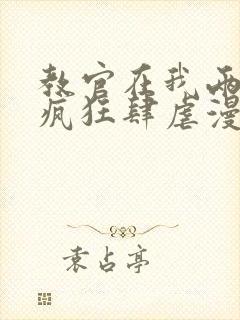 教官在我两
疯狂肆虐漫
袁占亭